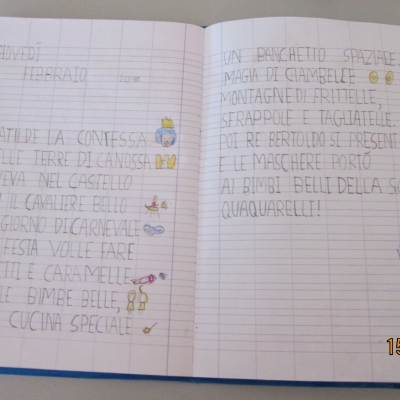 OVEDÌ
FEBBRAIO
ATILDE LA CONTESSA
LLE TERRE DI CANOSSA
EVA NEL CASTELLO
IL CAVALIERE BELLO
GIORNO DI CARNEVALE
FESTA VOLLE FARE
TTI E CARAMELLE
LE BIMBE BELLE,
CUCINA SPECIALE
UN BANCHETTO SPAZIALE:
MAGIA DI CIAMBELLE
MONTAGNE DI FRITTELLE,
SFRAPPOLE E TAGLIATELLE.
POI RE BERTOLDO SI PRESENT
E LE MASCHERE PORTÒ
AI BIMBI BELLI DELLA SC
QUAQUARELLI!
15